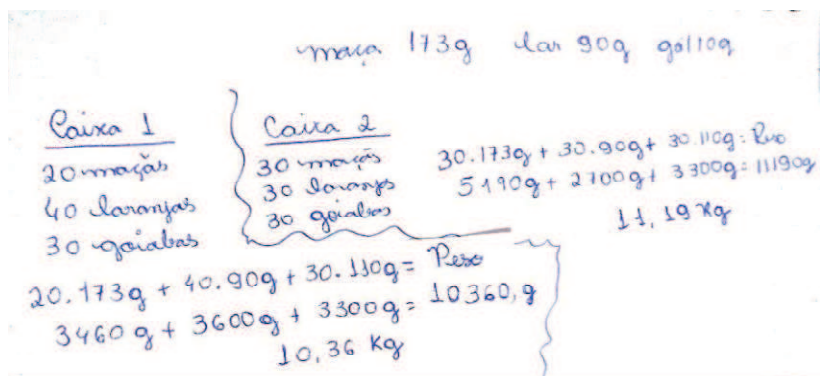 maça 173g lar 90g goi 110g
Caixa 1
20 maçãs
40 laranjas
30 goiabas
Caixa 2
30 maçãs
30 laranjas
30 goiabas
30.173g + 30.90g + 30.110g = Peso
5190g + 2700g + 3300g = 11190g
11,19 Kg
20.173g + 40.90g + 30.110g = Peso
3460 g + 3600g + 3300g = 10360,g
10,36 Kg